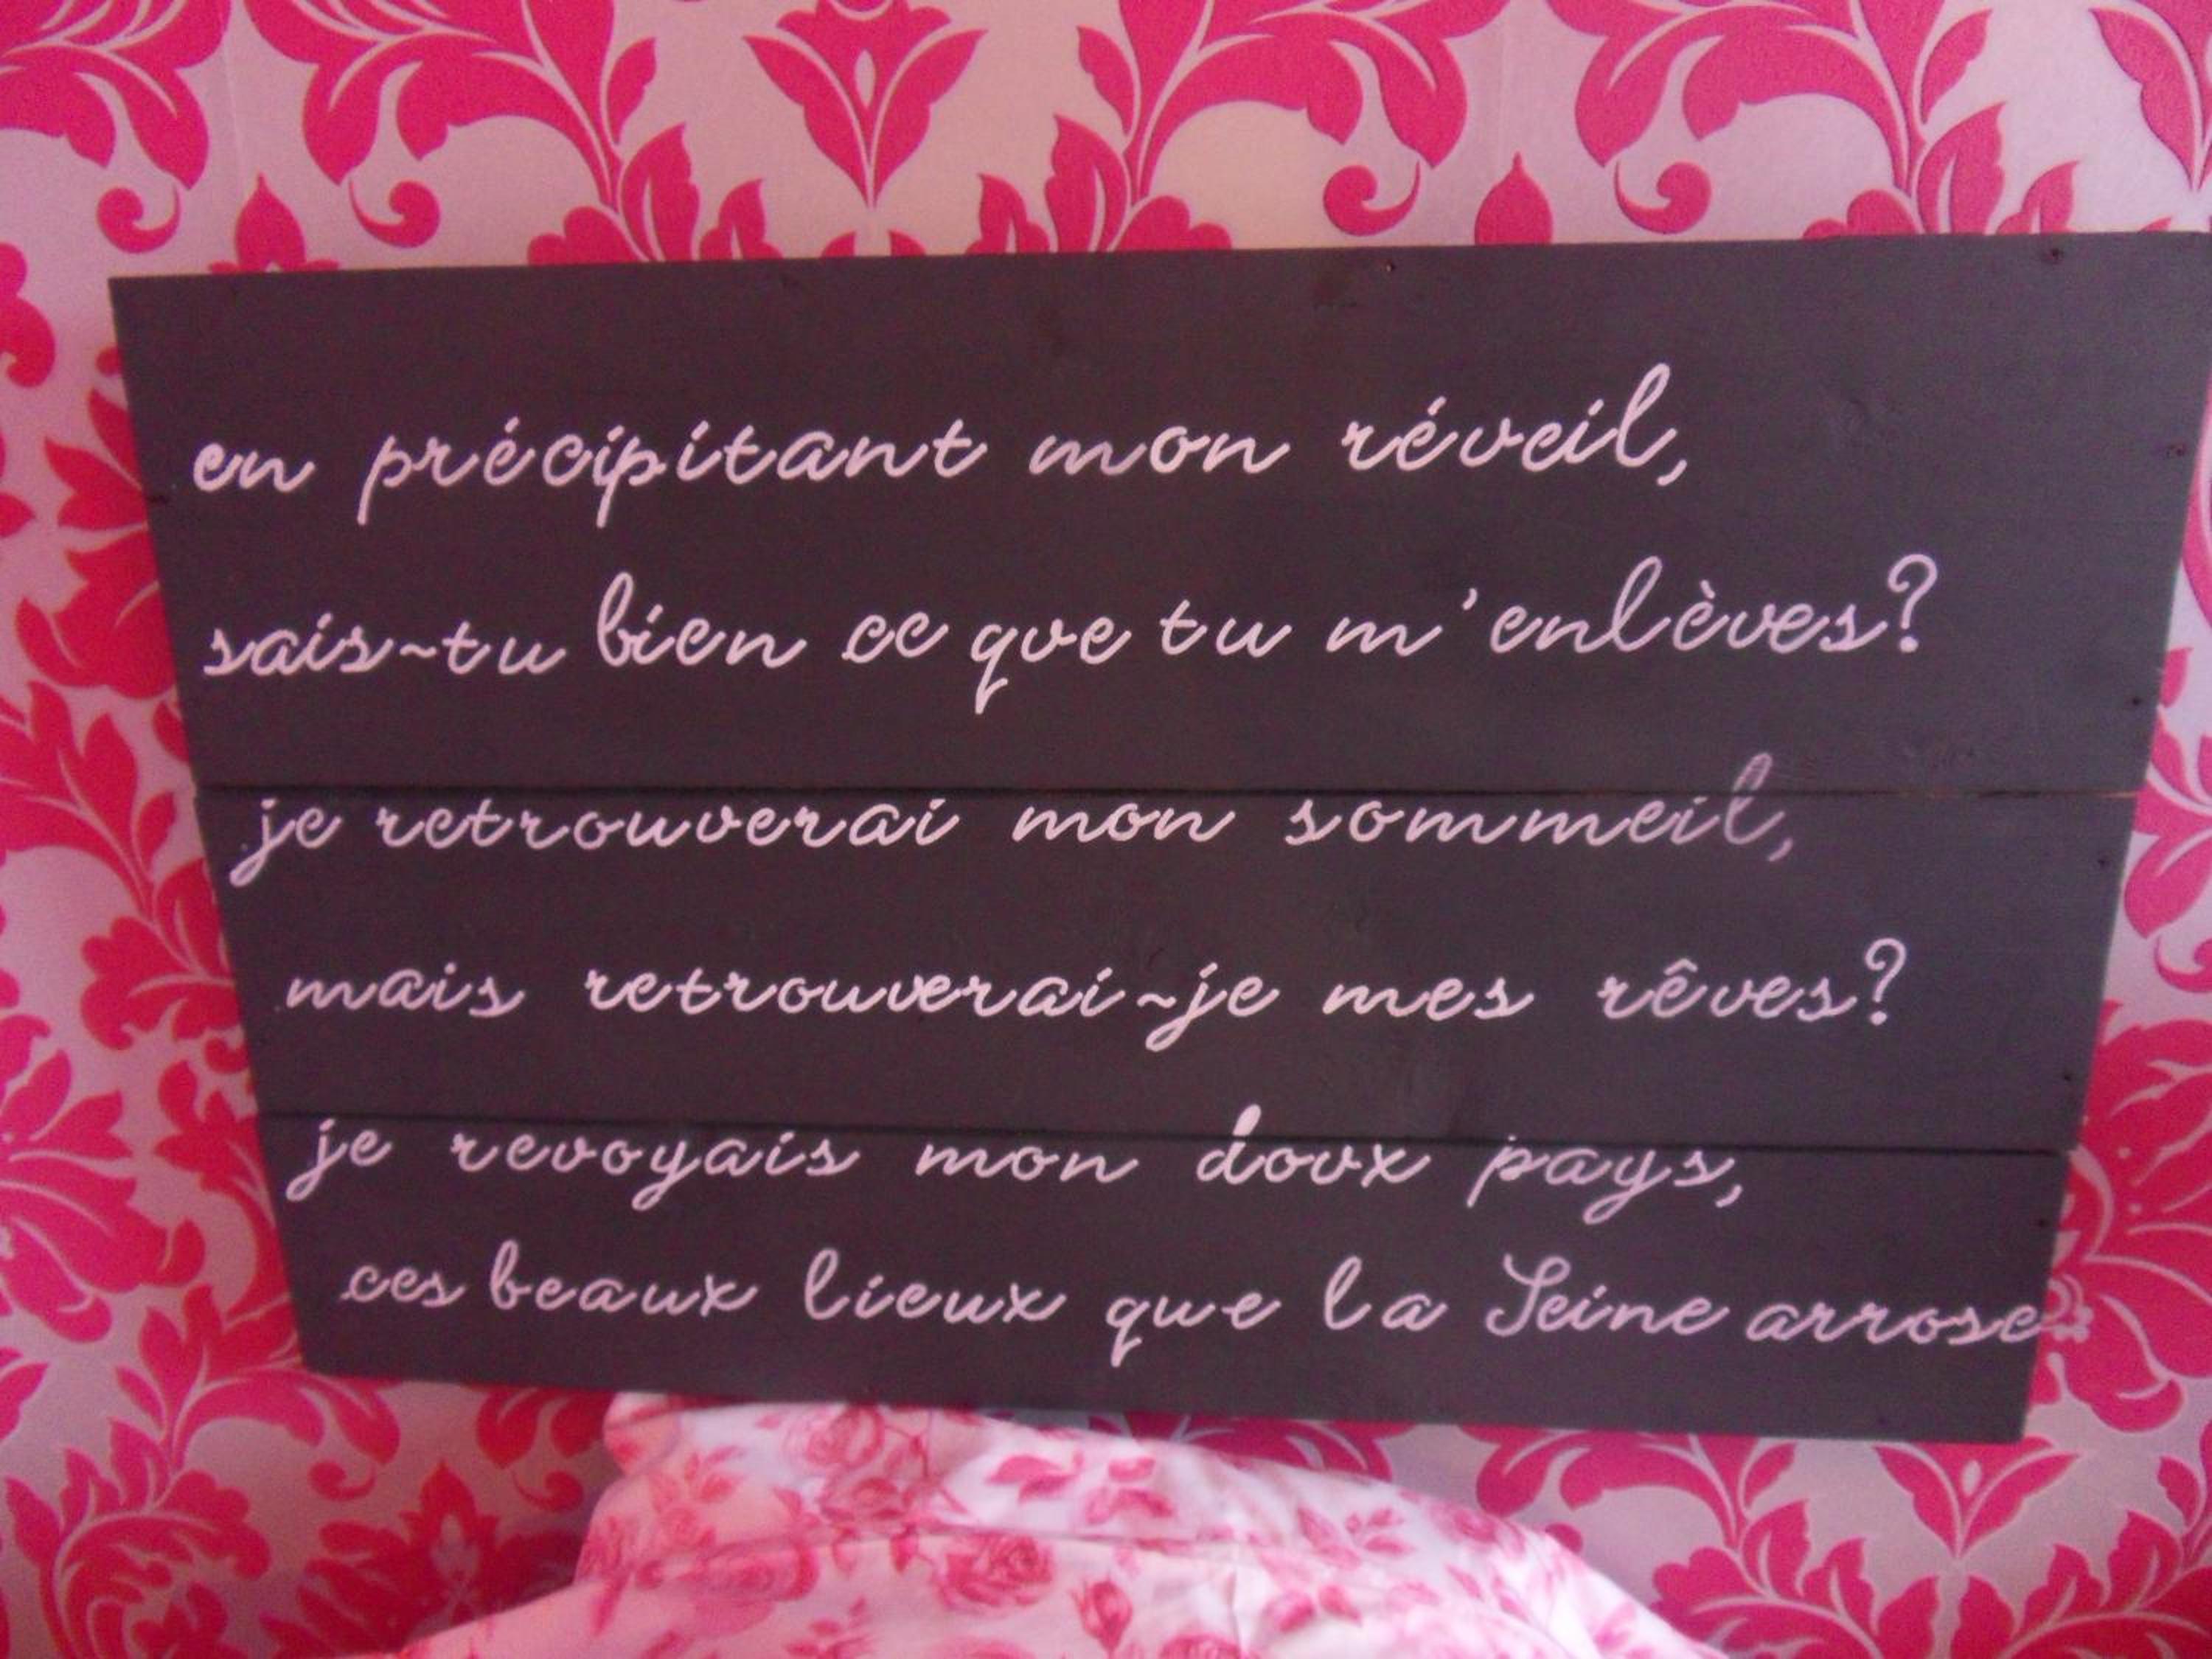 en précipitant mon réveil,
sais-tu bien ce que tu m'enlèves?
je retrouverai mon sommeil,
mais retrouverai-je mes rêves?
je revoyais mon doux pays,
ces beaux lieux que la Seine arrose